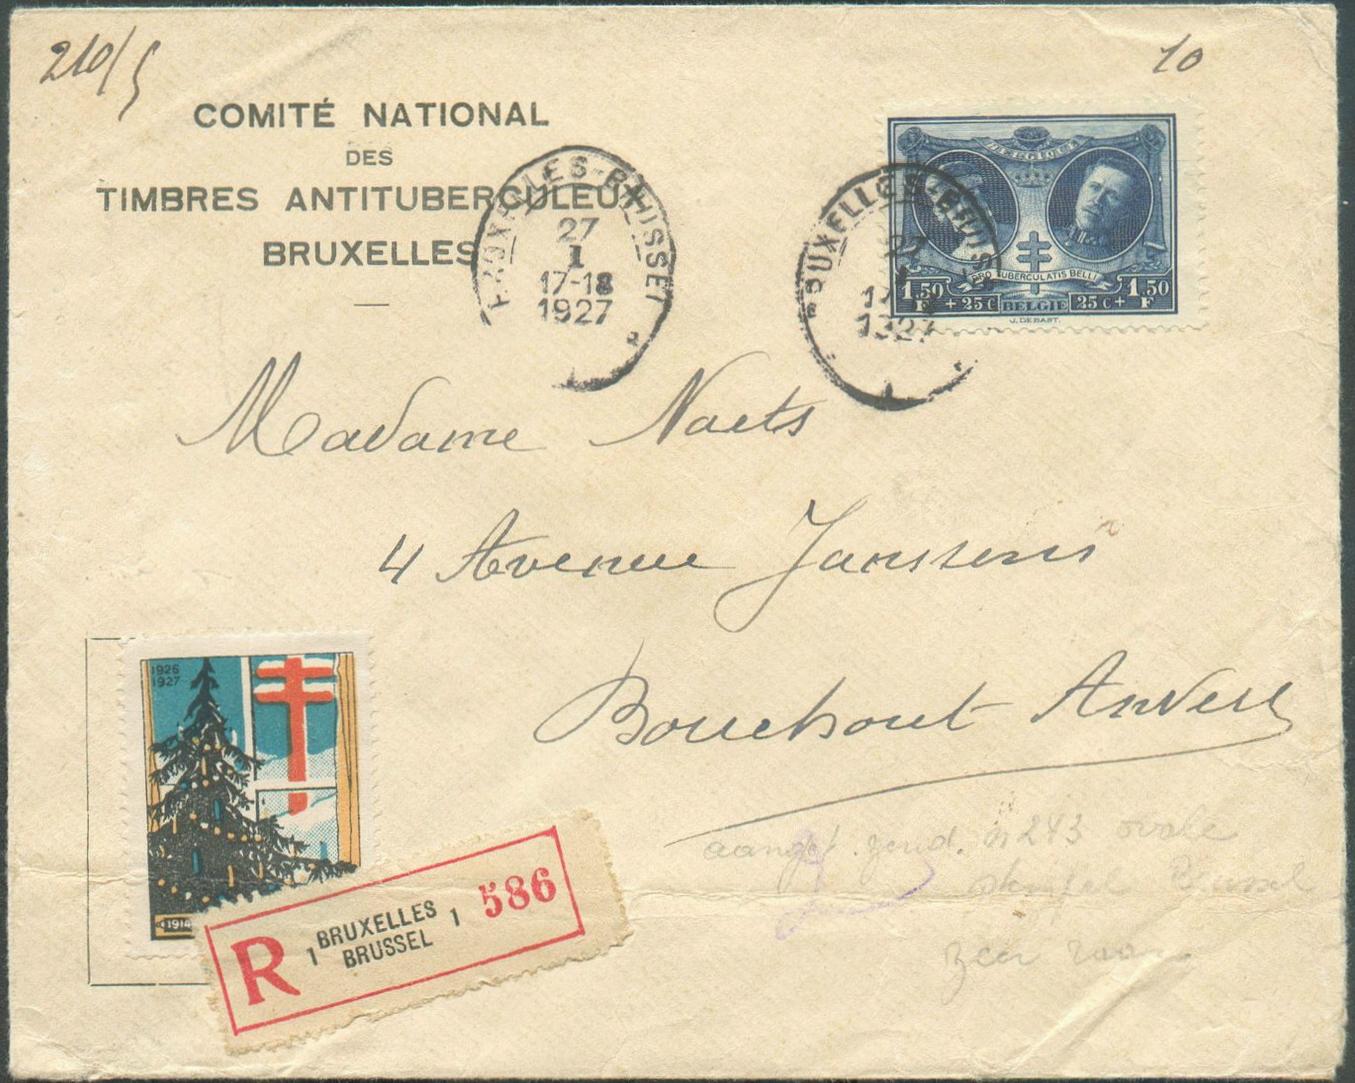 210/5
10
COMITÉ NATIONAL
DES
TIMBRES ANTITUBERCULEUX
BRUXELLES
BRUXELLES-BRUSSEL
27
I
17-18
1927
BRUXELLES-BRUS
27
17
1927
PRO TUBERCULATIS BELLI
1.50 F + 25 C BELGIE 25 C + 1.50 F
J. DEBAST.
Madame Naets
4 Avenue Janssens
Bouchout Anvers
1926
1927
1914
R 1 BRUXELLES 1 586
BRUSSEL
aanget. zend. n 243 ovale
stempel Brussel
zeer